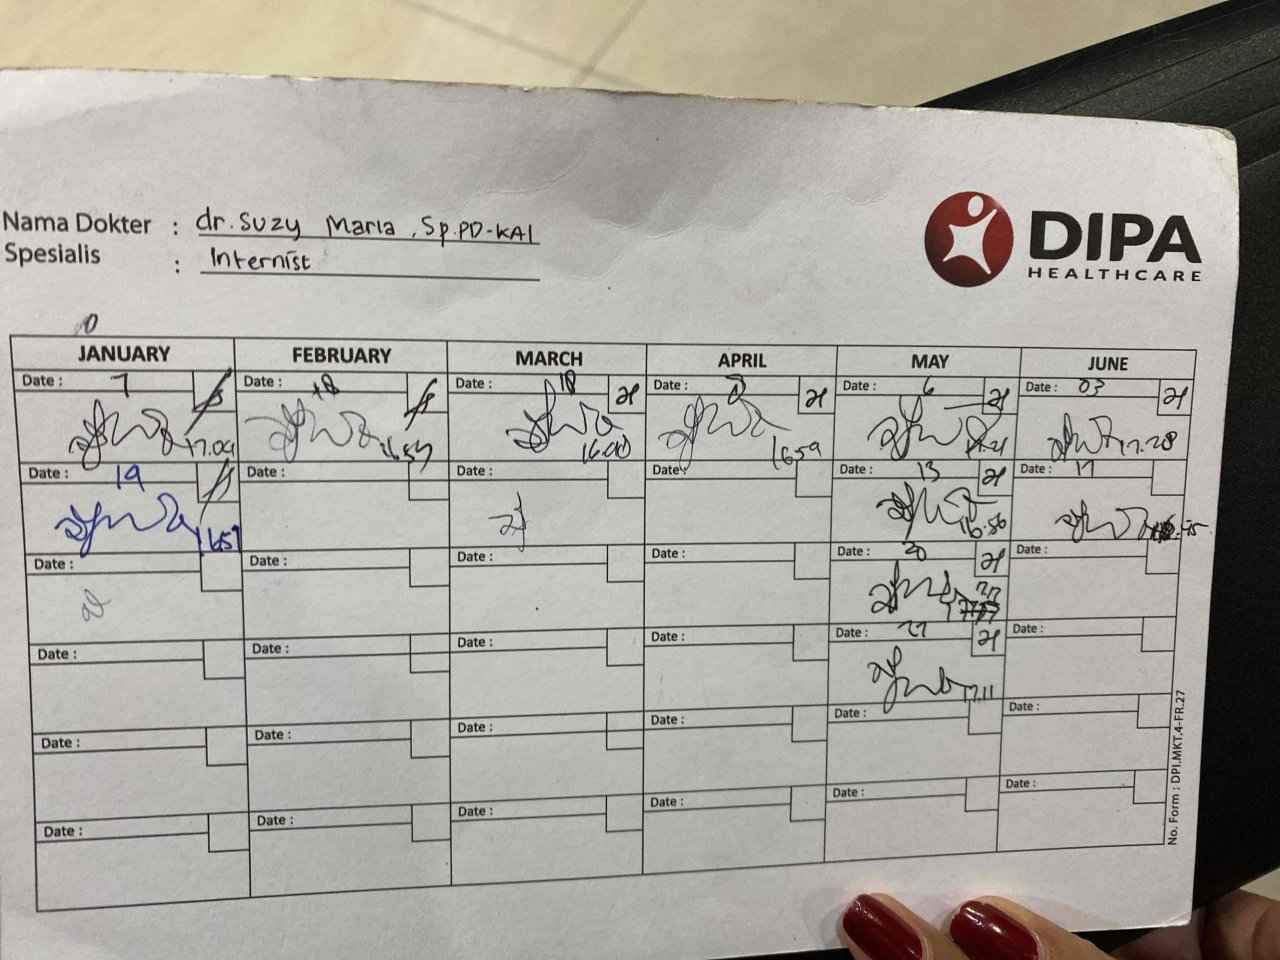 Nama Dokter : dr. Suzy Maria, Sp.PD-KAI
Spesialis : Internist
DIPA
HEALTHCARE
JANUARY FEBRUARY MARCH APRIL MAY JUNE
Date : 7 Date : 18 Date : 18 Date : Date : 6 Date : 03
17.09 16.59 17.28
Date : 19 Date : Date : Date : Date : 13 Date : 17
16.57 16.56
Date : Date : Date : Date : Date : 20 Date :
Date : Date : Date : Date : Date : 27 Date :
17.11
Date : Date : Date : Date : Date : Date :
Date : Date : Date : Date : Date : Date :
No. Form : DPI.MKT.4-FR.27